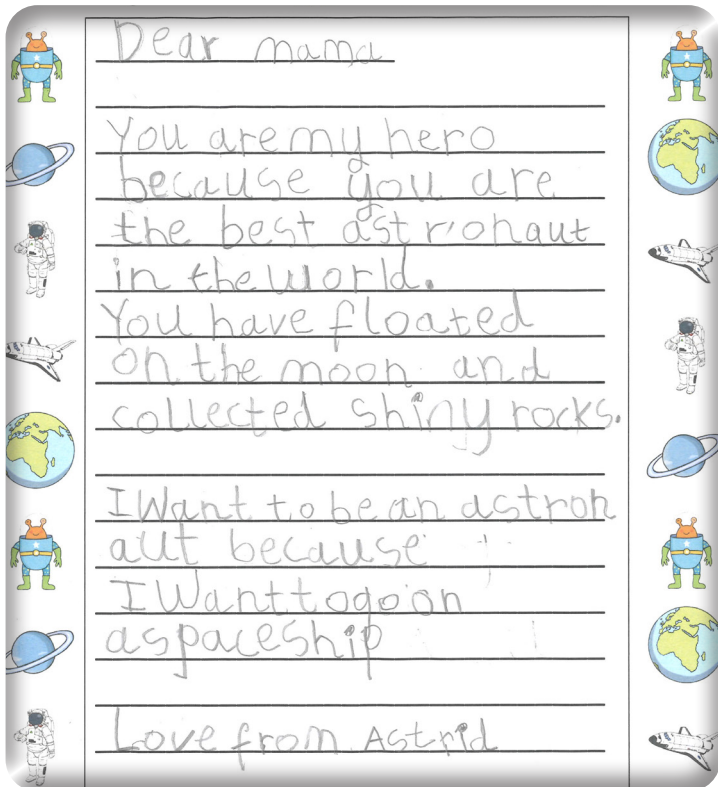 Dear mama
You are my hero
because you are
the best astronaut
in the world.
You have floated
on the moon and
collected shiny rocks.
I Want to be an astron
aut because
I Want to go on
a spaceship
Love from Astrid